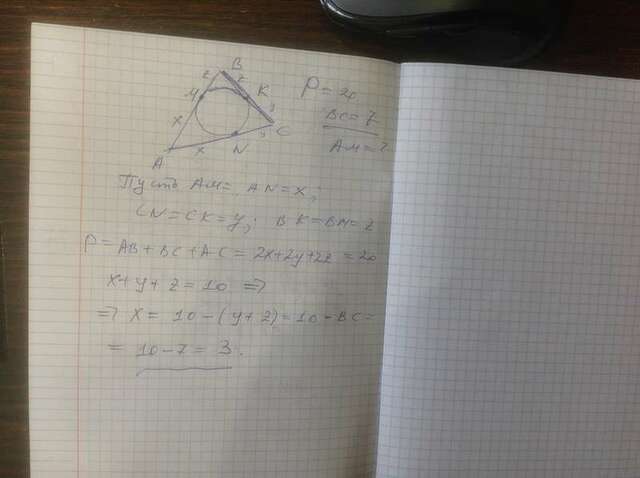 B
z
z
M
K
P = 20
BC = 7
y
C
x
y
AM = ?
x
N
A
Пусть AM = AN = x;
CN = CK = y; BK = BM = z
P = AB + BC + AC = 2x + 2y + 2z = 20
x + y + z = 10 ⇒
⇒ x = 10 - (y + z) = 10 - BC =
= 10 - 7 = 3.